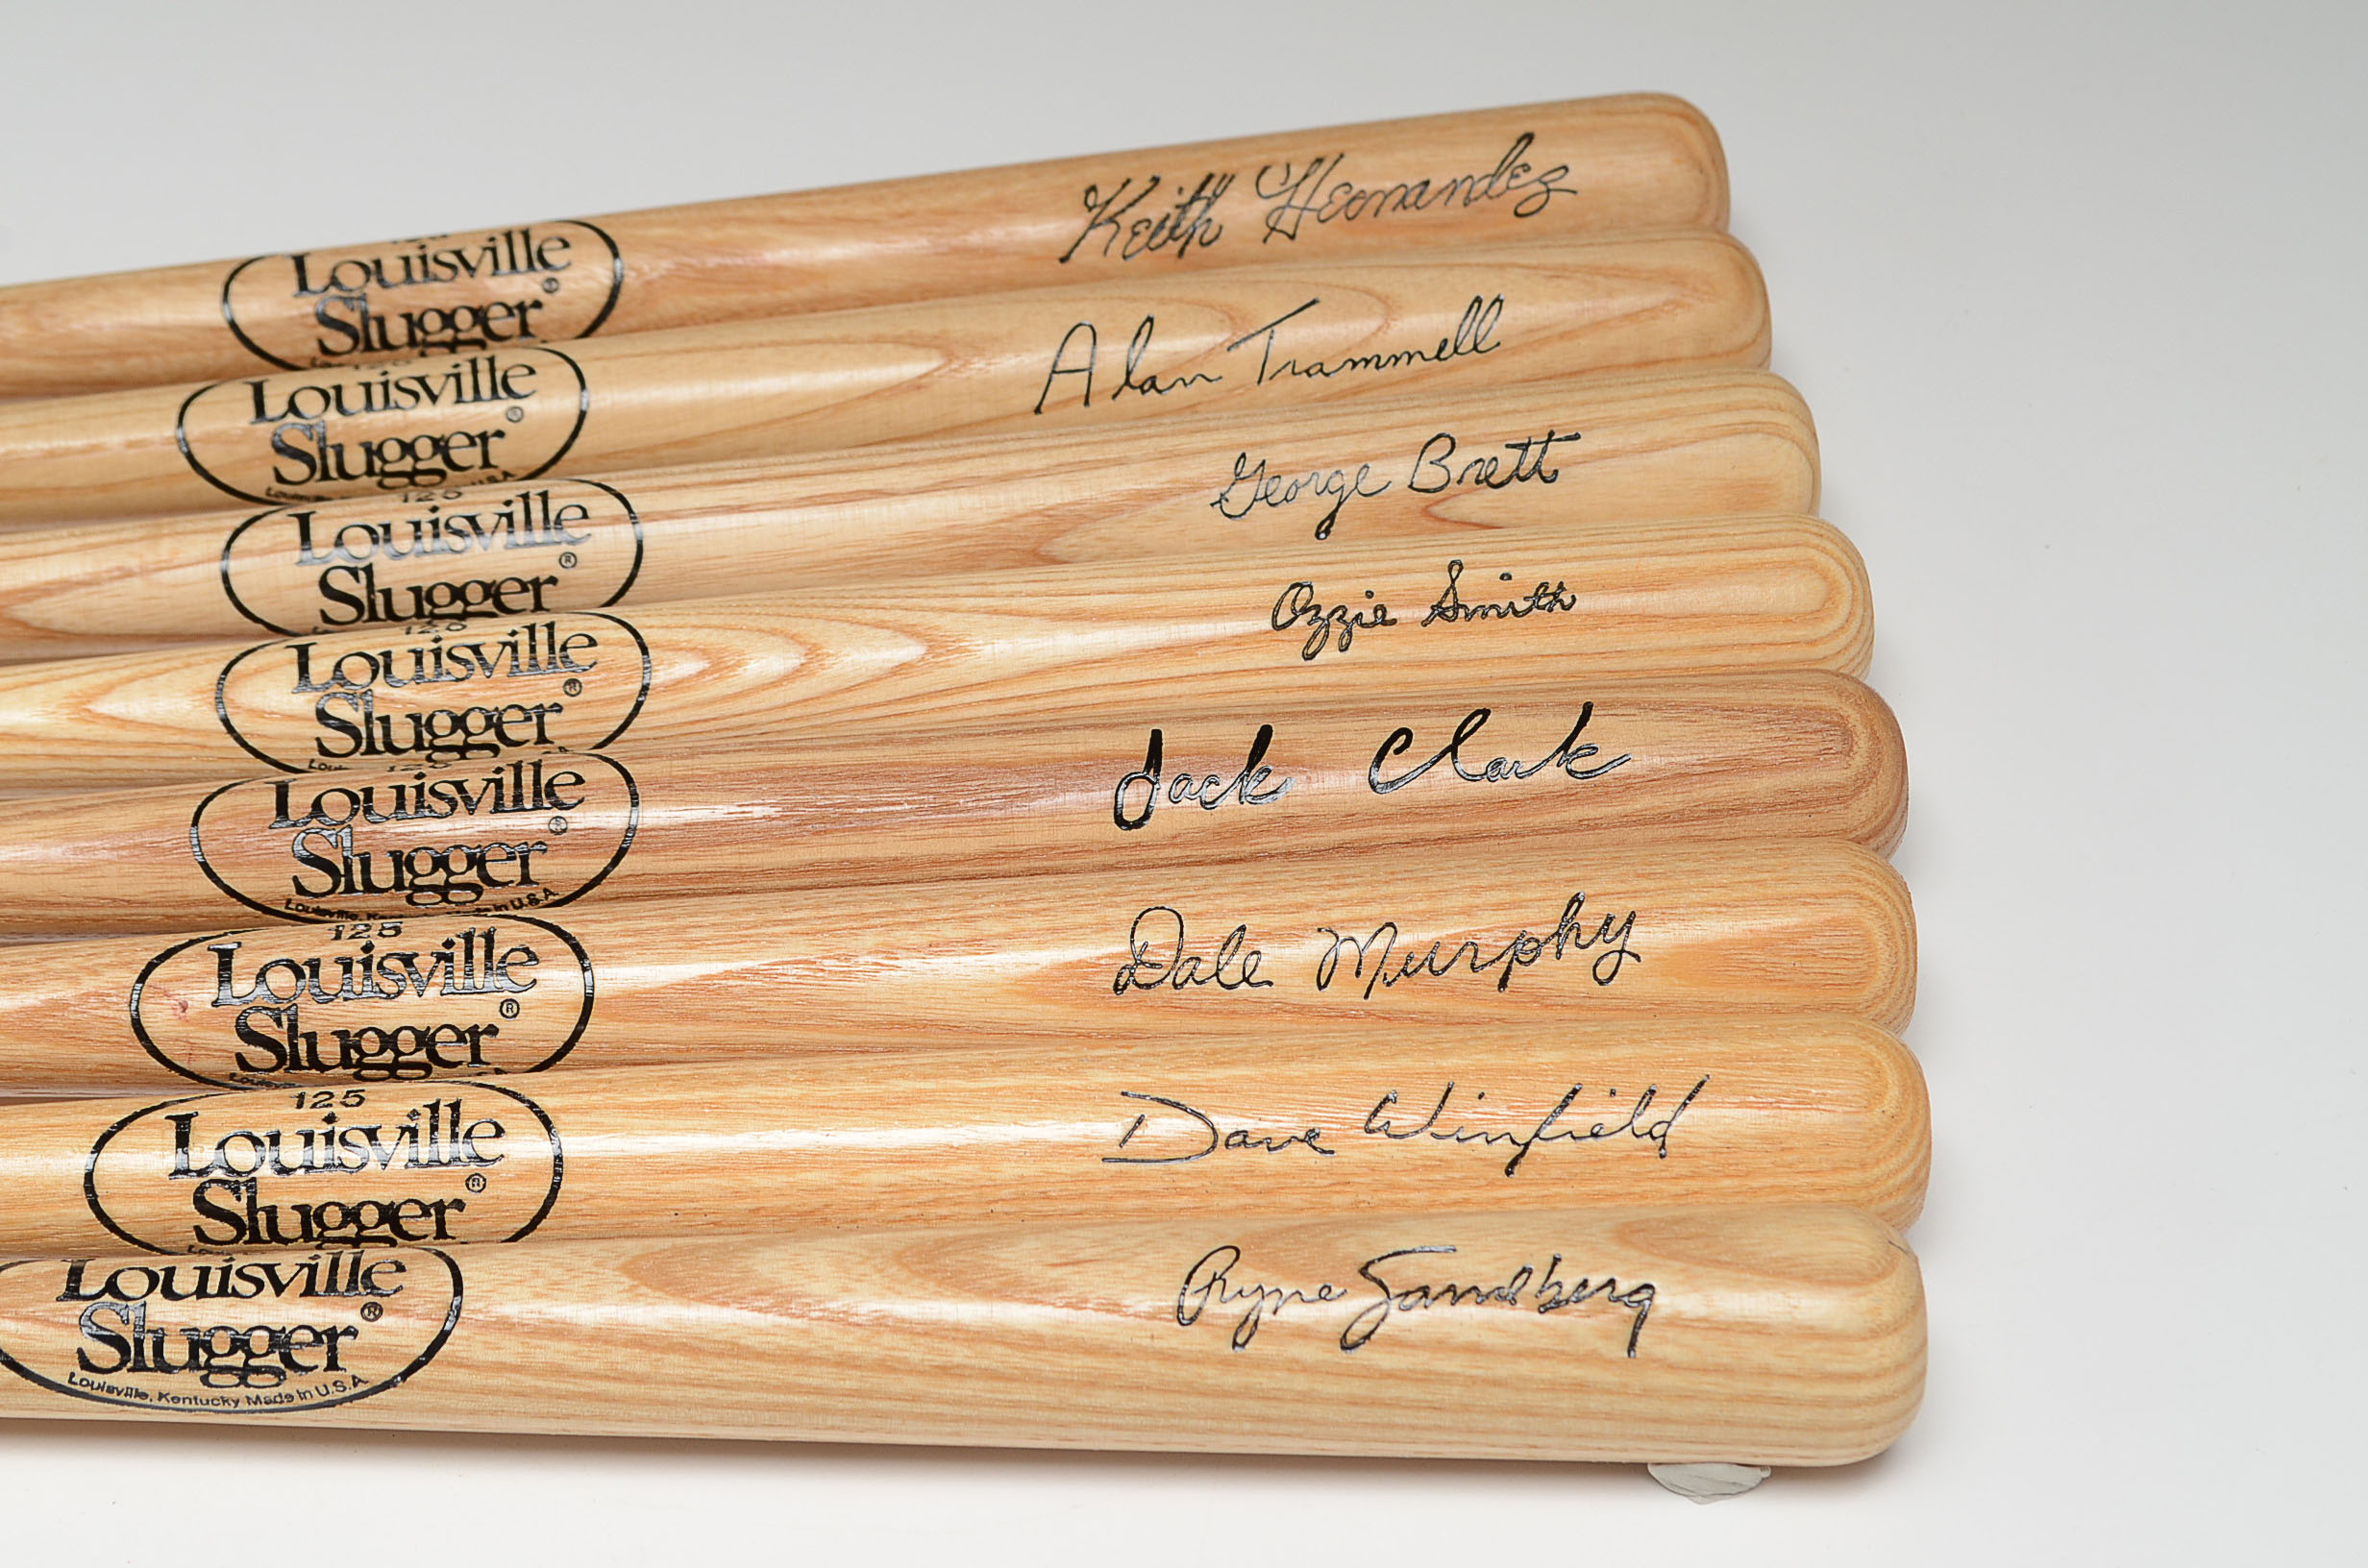 Louisville
Slugger®
Keith Hernandez
Louisville
Slugger®
U.S.A
Alan Trammell
125
Louisville
Slugger®
George Brett
125
Louisville
Slugger®
Ozzie Smith
125
Louisville
Slugger®
Louisville, Made in U.S.A.
Jack Clark
125
Louisville
Slugger®
Dale Murphy
125
Louisville
Slugger®
Dave Winfield
Louisville
Slugger®
Louisville, Kentucky Made in U.S.A.
Ryne Sandberg